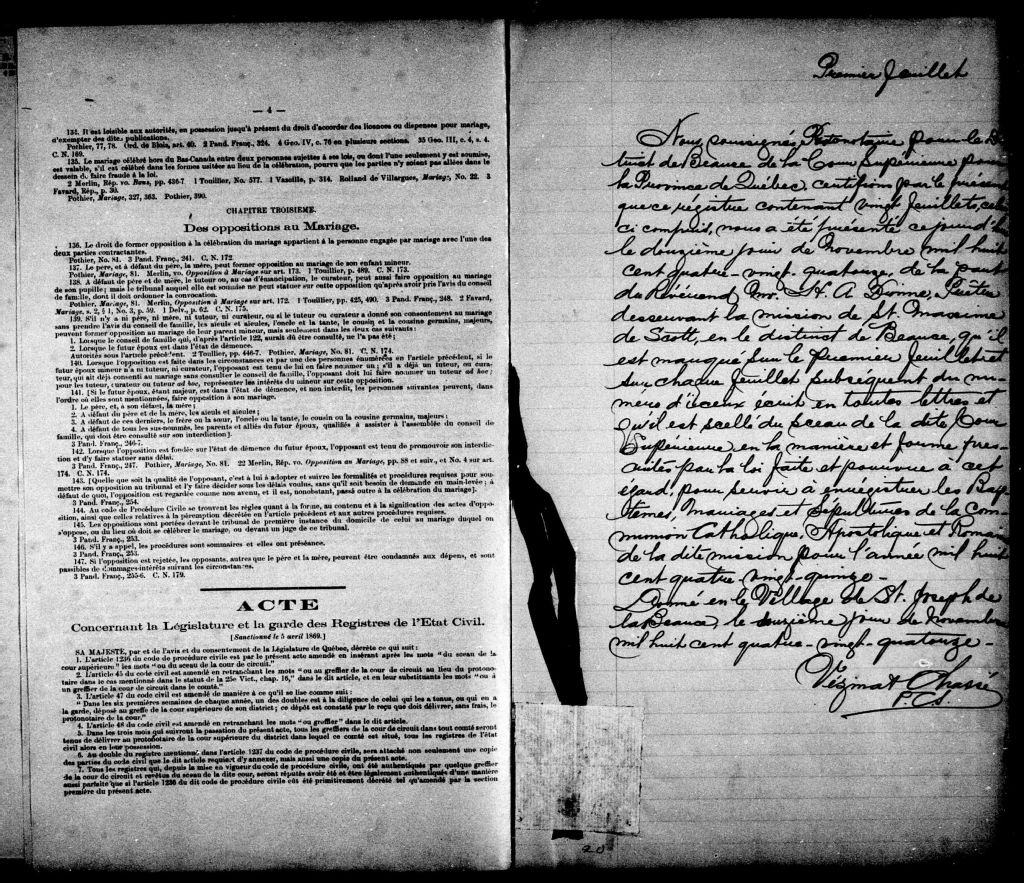 — 4 —
134. Il est loisible aux autorités, en possession jusqu'à présent du droit d'accorder des licences ou dispenses pour mariage,
d'exempter des dites publications.
Pothier, 77, 78. Ord. de Blois, art. 40. 2 Pand. Franç., 324. 4 Geo. IV, c. 76 en plusieurs sections. 35 Geo. III, c. 4, s. 4.
C. N. 169.
135. Le mariage célébré hors du Bas-Canada entre deux personnes sujettes à ses lois, ou dont l'une seulement y est soumise,
est valable, s'il est célébré dans les formes usitées au lieu de la célébration, pourvu que les parties n'y soient pas allées dans le
dessein de faire fraude à la loi.
2 Merlin, Rép. vo. Bans, pp. 436-7 1 Touillier, No. 577. 1 Vazeille, p. 314. Rolland de Villargues, Mariage, No. 22. 3
Favard, Rép., p. 30.
Pothier, Mariage, 327, 363. Pothier, 390.
CHAPITRE TROISIEME.
Des oppositions au Mariage.
136. Le droit de former opposition à la célébration du mariage appartient à la personne engagée par mariage avec l'une des
deux parties contractantes.
Pothier, No. 81. 3 Pand. Franç., 241. C. N. 172.
137. Le père, et à défaut du père, la mère, peut former opposition au mariage de son enfant mineur.
Pothier, Mariage, 81. Merlin, vo. Opposition à Mariage sur art. 173. 1 Touillier, p. 489. C. N. 173.
138. A défaut de père et de mère, le tuteur ou, au cas d'émancipation, le curateur, peut aussi faire opposition au mariage
de son pupille; mais le tribunal auquel elle est soumise ne peut statuer sur cette opposition qu'après avoir pris l'avis du conseil
de famille, dont il doit ordonner la convocation.
Pothier, Mariage, 81. Merlin, Opposition à Mariage sur art. 172. 1 Touillier, pp. 425, 490. 3 Pand. Franç., 248. 2 Favard,
Mariage, s. 2, § 1, No. 3, p. 59. 1 Delv., p. 62. C. N. 175.
139. S'il n'y a ni père, ni mère, ni tuteur, ni curateur, ou si le tuteur ou curateur a donné son consentement au mariage
sans prendre l'avis du conseil de famille, les aïeuls et aïeules, l'oncle et la tante, le cousin et la cousine germains, majeurs,
peuvent former opposition au mariage de leur parent mineur, mais seulement dans les deux cas suivants:
1. Lorsque le conseil de famille qui, d'après l'article 122, aurait dû être consulté, ne l'a pas été;
2. Lorsque le futur époux est dans l'état de démence.
Autorités sous l'article précédent. 2 Touiller, pp. 446-7. Pothier, Mariage, No. 81. C. N. 174.
140. Lorsque l'opposition est faite dans les circonstances et par une des personnes énumérées en l'article précédent, si le
futur époux mineur n'a ni tuteur, ni curateur, l'opposant est tenu de lui en faire nommer un; s'il a déjà un tuteur, ou cura-
teur, qui ait déjà consenti au mariage sans consulter le conseil de famille, l'opposant doit lui faire nommer un tuteur ad hoc;
pour les tuteur, curateur ou tuteur ad hoc, représenter les intérêts du mineur sur cette opposition.
141. [Si le futur époux, étant majeur, est dans l'état de démence, et non interdit, les personnes suivantes peuvent, dans
l'ordre où elles sont mentionnées, faire opposition à son mariage.
1. Le père, et, à son défaut, la mère;
2. A défaut du père et de la mère, les aïeuls et aïeules;
3. A défaut de ces derniers, le frère ou la sœur, l'oncle ou la tante, le cousin ou la cousine germains, majeurs;
4. A défaut de tous les sus-nommés, les parents et alliés du futur époux, qualifiés à assister à l'assemblée du conseil de
famille, qui doit être consulté sur son interdiction].
3 Pand. Franç., 246-7.
142. Lorsque l'opposition est fondée sur l'état de démence du futur époux, l'opposant est tenu de promouvoir son interdic-
tion et d'y faire statuer sans délai.
3 Pand. Franç., 247. Pothier, Mariage, No. 81. 22 Merlin, Rép. vo. Opposition au Mariage, pp. 88 et suiv., et No. 4 sur art.
174. C. N. 174.
143. [Quelle que soit la qualité de l'opposant, c'est à lui à adopter et suivre les formalités et procédures requises pour sou-
mettre son opposition au tribunal et l'y faire décider sous les délais voulus, sans qu'il soit besoin de demande en main-levée; à
défaut de quoi, l'opposition est regardée comme non avenu, et il est, nonobstant, passé outre à la célébration du mariage].
3 Pand. Franç., 254.
144. Au code de Procédure Civile se trouvent les règles quant à la forme, au contenu et à la signification des actes d'oppo-
sition, ainsi que celles relatives à la péremption décrétée en l'article précédent et aux autres procédures requises.
145. Les oppositions sont portées devant le tribunal de première instance du domicile de celui au mariage duquel on
s'oppose, ou du lieu où doit se célébrer le mariage, ou devant un juge de ce tribunal.
3 Pand. Franç., 253.
146. S'il y a appel, les procédures sont sommaires et elles ont préséance.
3 Pand. Franç., 253.
147. Si l'opposition est rejetée, les opposants, autres que le père et la mère, peuvent être condamnés aux dépens, et sont
passibles de dommages-intérêts suivant les circonstances.
3 Pand. Franç., 255-6. C. N. 179.
ACTE
Concernant la Législature et la garde des Registres de l'Etat Civil.
[Sanctionné le 5 avril 1869.]
SA MAJESTÉ, par et de l'avis et du consentement de la Législature de Québec, décrète ce qui suit:
1. L'article 1236 du code de procédure civile est par le présent acte amendé en insérant après les mots "du sceau de la
cour supérieure" les mots "ou du sceau de la cour de circuit."
2. L'article 45 du code civil est amendé en retranchant les mots "ou au greffier de la cour de circuit au lieu du protono-
taire dans le cas mentionné dans le statut de la 25e Vict., chap. 16," dans le dit article, et en leur substituants les mots "ou à
un greffier de la cour de circuit dans le comté."
3. L'article 47 du code civil est amendé de manière à ce qu'il se lise comme suit:
"Dans les six premières semaines de chaque année, un des doubles est à la diligence de celui qui les a tenus, ou qui en a
la garde, déposé au greffe de la cour supérieure de son district; ce dépôt est constaté par le reçu que doit délivrer, sans frais, le
protonotaire de la cour."
4. L'article 48 du code civil est amendé en retranchant les mots "ou greffier" dans le dit article.
5. Dans les trois mois qui suivront la passation du présent acte, tous les greffiers de la cour de circuit dans tout comté seront
tenus de délivrer au protonotaire de la cour supérieure du district dans lequel ce comté est situé, tous les registres de l'état
civil alors en leur possession.
6. Au double du registre mentionné dans l'article 1237 du code de procédure civile, sera attaché non seulement une copie
des parties du code civil que le dit article requiert d'y annexer, mais aussi une copie du présent acte.
7. Tous les registres qui, depuis la mise en vigueur du code de procédure civile, ont été authentiqués par quelque greffier
de la cour de circuit et revêtus du sceau de la dite cour, seront réputés avoir été et être légalement authentiqués d'une manière
aussi parfaite que si l'article 1236 du dit code de procédure civile eût été primitivement décrété tel qu'amendé par la section
première du présent acte.
Premier feuillet
Nous soussignés, Protonotaire pour le Dis
trict de Beauce de la Cour Supérieure pour
la Province de Québec, certifions par le présent
que ce régistre contenant vingt feuillets, celui
ci compris, nous a été présenté ce jourd'hui
le douzième jour de Novembre mil huit
cent quatre-vingt-quatorze, de la part
du Révérend Mr. H. A. Dionne, Prêtre
desservant la mission de St. Maxime
de Scott, en le district de Beauce, qu'il
est marqué sur le premier feuillet et
sur chaque feuillet subséquent du nu-
méro d'iceux écrit en toutes lettres et
qu'il est scellé du sceau de la dite Cour
Supérieure en la manière et forme pres-
crites par la loi faite et pourvue à cet
égard, pour servir à enrégistrer les Bap-
têmes, mariages et sépultures de la Com-
munion Catholique, Apostolique et Romaine
de la dite mission pour l'année mil huit
cent quatre-vingt-quinze -
Donné en le Village de St. Joseph de
la Beauce, le douzième jour de Novembre
mil huit cent quatre-vingt-quatorze -
Vézina & Chassé
P. C. S.
20